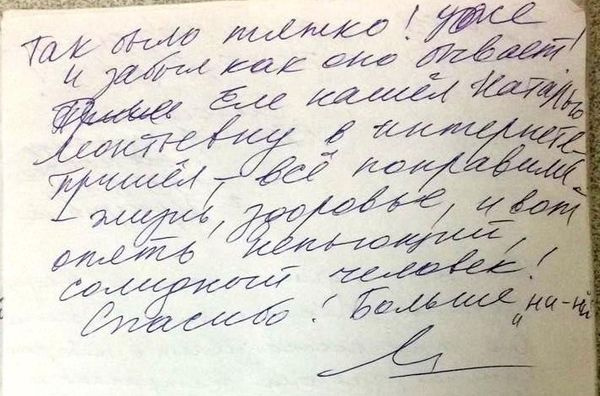 Так было тяжко! Уже
и забыл как оно бывает!
Еле нашёл Наталью
Леонтьевну в интернете-
Пришёл, – всё поправили-
- жизнь, здоровье, и вот
опять непьющий,
солидный человек!
Спасибо! Больше „ни-ни